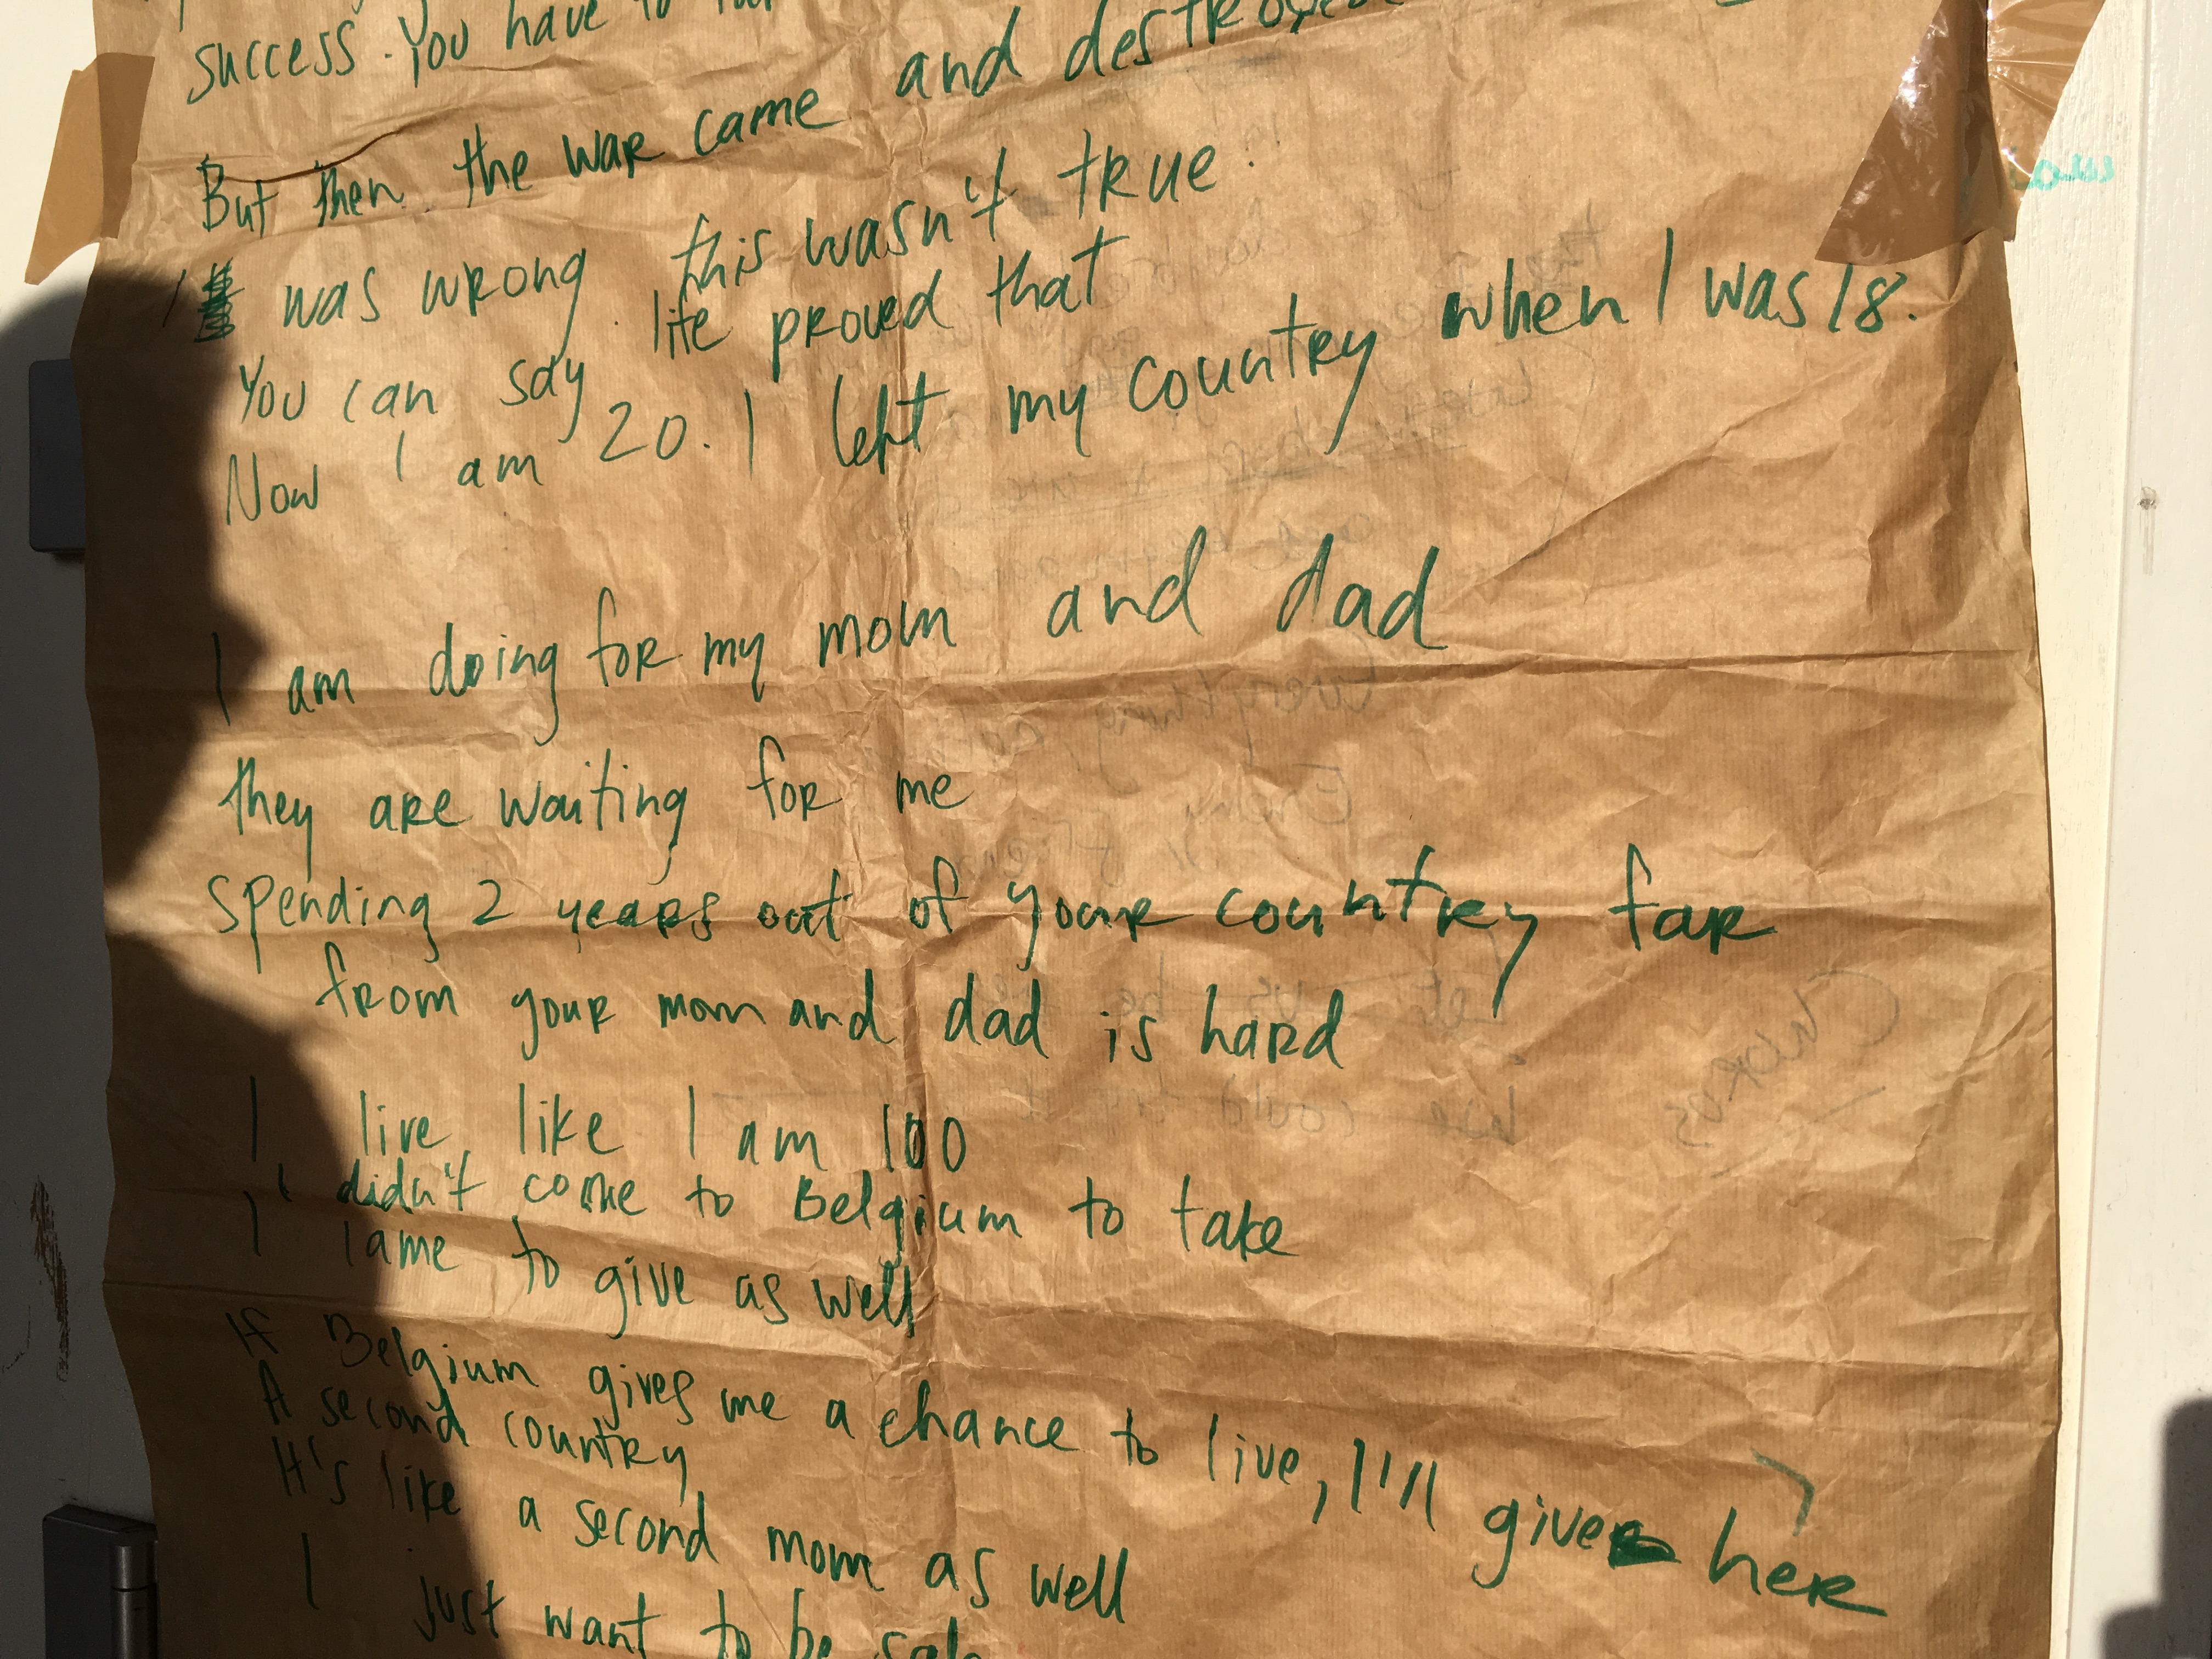 success. You have to
But then the war came and destroyed
I was wrong this wasn't true.
You can say life proved that
Now I am 20. I left my country when I was 18.
I am doing for my mom and dad
they are waiting for me
spending 2 years out of your country far
from your mom and dad is hard
I live like I am 100
I didn't come to Belgium to take
I came to give as well
If Belgium gives me a chance to live, I'll give here
A second country
It's like a second mom as well
I just want to be safe